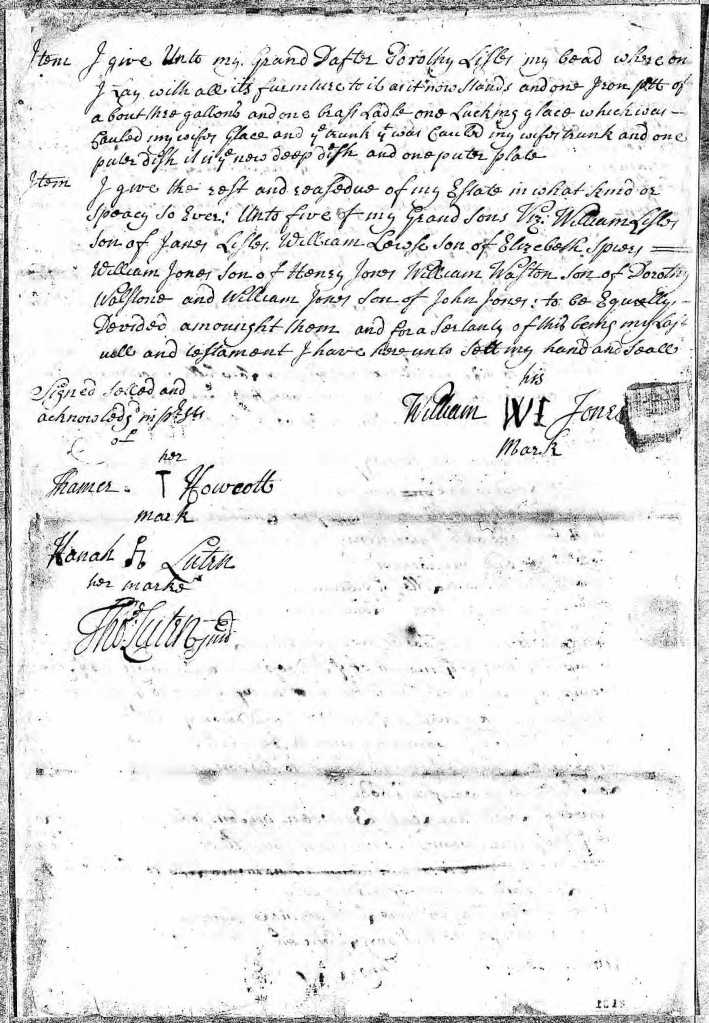 Item I give Unto my Grand Dafter Dorothy Lisles my bead where on
I Lay with all its furniture to it as it now stands and one Iron pott of
about three gallons and one brass Ladle one Lucking glace which was
Cauled my wifes Glace and ye trunk yt was Cauled my wifes trunk and one
puter dish it is ye new deep dish and one puter plate
Item I give the rest and reasedue of my Estate in what kind or
speacy so Ever: Unto five of my Grand sons Viz. William Lisles
son of Janes Lisles. William Lewse son of Elizebeth Spiers
William Jones son of Henry Jones William Walston son of Dorothy
Walstone and William Jones son of John Jones: to be Equelly
Devided amounght them and for a Sertanty of this being my Last
will and testament I have here unto Sett my hand and Seall
Signed selled and
acknowledgd in
of
his
William WI Jones
Mark
her
Thamer T Howcott
mark
Hanah H Luten
her marke
Tho: Luten Jund
1818